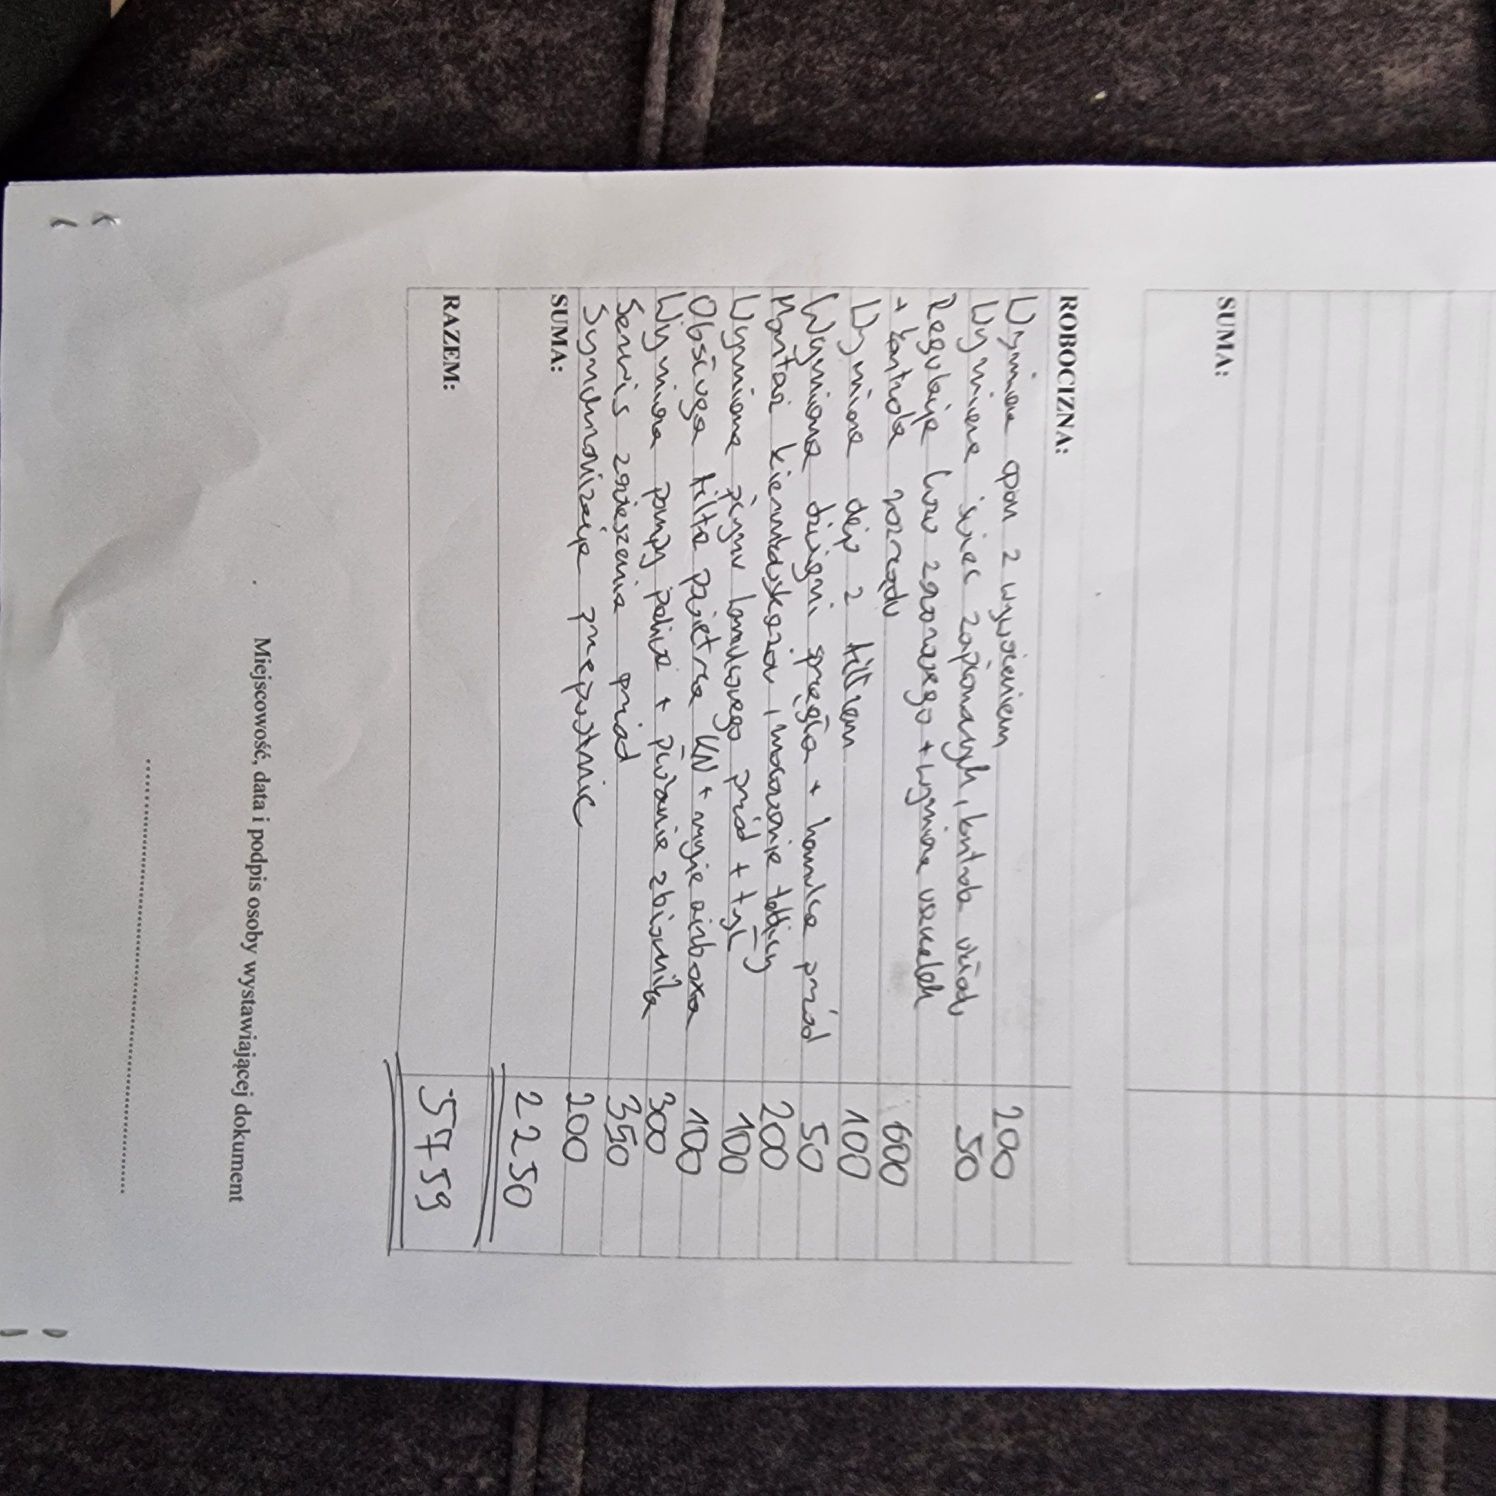 SUMA:
ROBOCIZNA:
Wymiana opon z wyważeniem 200
Wymiana świec zapłonowych, kontrola układu 50
Regulacja luzu zaworowego + wymiana uszczelek
+ kontrola rozrządu 600
Wymiana oleju z filtrem 100
Wymiana dźwigni sprzęgła + hamulca przód 50
Montaż kierunkowskazów, mocowanie tablicy 200
Wymiana płynu hamulcowego przód + tył 100
Obsługa filtra powietrza KN + mycie airboxa 100
Wymiana pompy paliwa + płukanie zbiornika 300
Serwis zawieszenia przód 350
Synchronizacja przepustnic 200
SUMA: 2250
RAZEM: 5759
Miejscowość, data i podpis osoby wystawiającej dokument